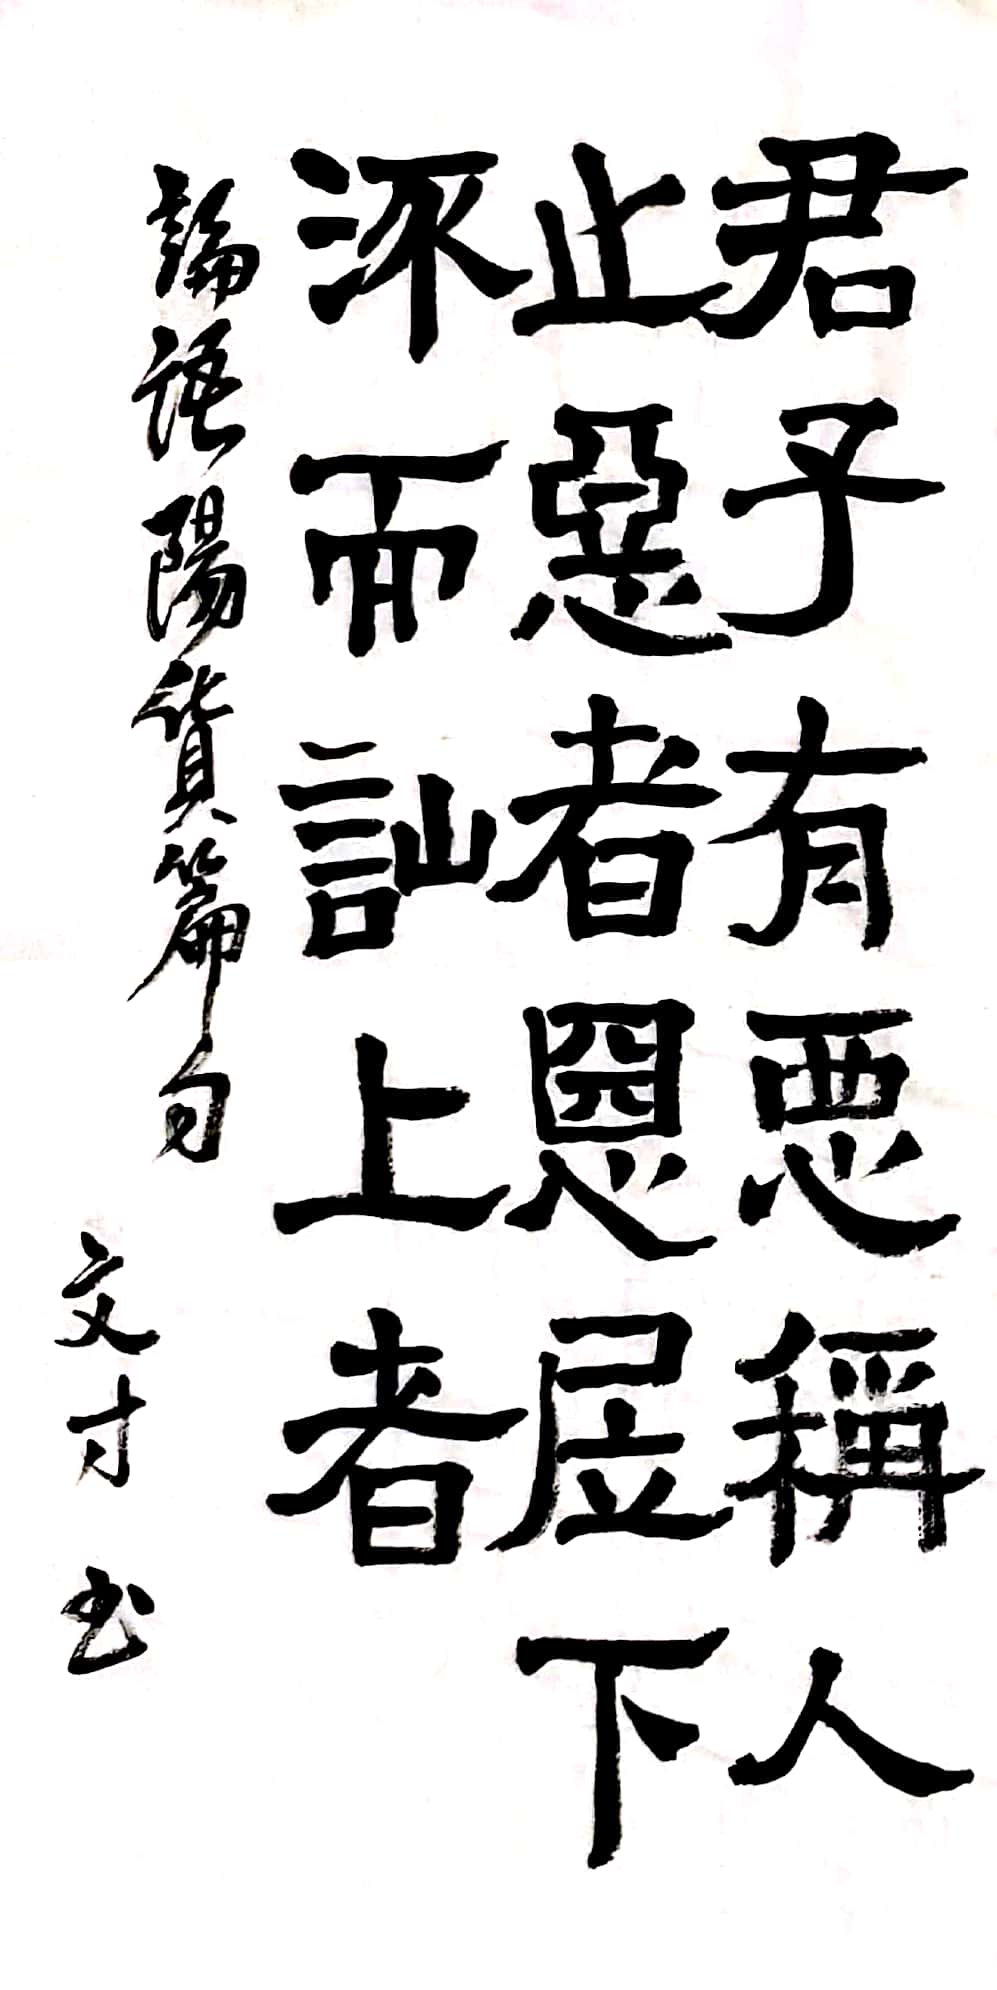 君子有惡稱人
之惡者惡居下
流而訕上者
論語陽貨篇句
文才书